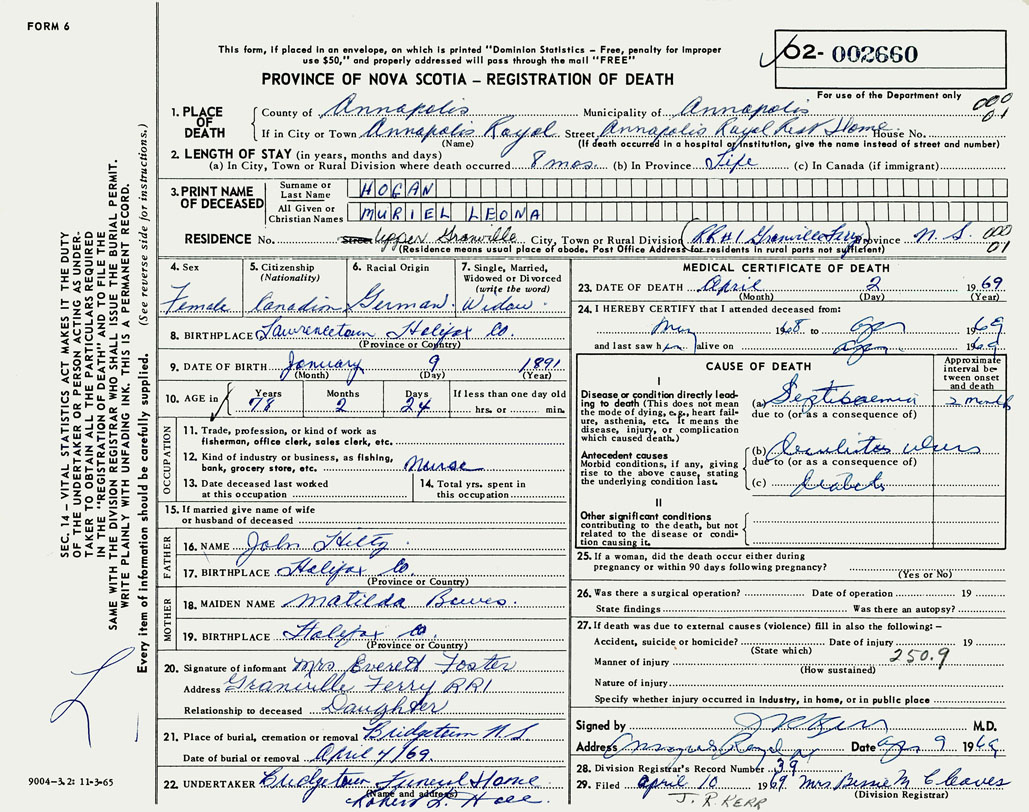 FORM 6
This form, if placed in an envelope, on which is printed "Dominion Statistics – Free, penalty for improper
use $50," and properly addressed will pass through the mail "FREE"
PROVINCE OF NOVA SCOTIA – REGISTRATION OF DEATH
02- 002660
For use of the Department only
000
01
1. PLACE OF DEATH
County of Annapolis Municipality of Annapolis
If in City or Town Annapolis Royal Street Annapolis Royal Rest Home House No.
(Name) (If death occurred in a hospital or institution, give the name instead of street and number)
2. LENGTH OF STAY (in years, months and days)
(a) In City, Town or Rural Division where death occurred 8 mos. (b) In Province Life (c) In Canada (if immigrant)
3. PRINT NAME OF DECEASED
Surname or Last Name HOGAN
All Given or Christian Names MURIEL LEONA
RESIDENCE No. Street Upper Granville City, Town or Rural Division (RR#1 Granville Ferry) Province N.S. 000
01
(Residence means usual place of abode. Post Office Address for residents in rural parts not sufficient)
4. Sex Female
5. Citizenship (Nationality) Canadin
6. Racial Origin German
7. Single, Married, Widowed or Divorced (write the word) Widow
8. BIRTHPLACE Lawrencetown Halifax Co.
(Province or Country)
9. DATE OF BIRTH January 9 1891
(Month) (Day) (Year)
10. AGE in Years 78 Months 2 Days 24 If less than one day old hrs. or min.
OCCUPATION
11. Trade, profession, or kind of work as fisherman, office clerk, sales clerk, etc.
12. Kind of industry or business, as fishing, bank, grocery store, etc. Nurse
13. Date deceased last worked at this occupation
14. Total yrs. spent in this occupation
15. If married give name of wife or husband of deceased
FATHER
16. NAME John Hiltz
17. BIRTHPLACE Halifax Co.
(Province or Country)
MOTHER
18. MAIDEN NAME Matilda
19. BIRTHPLACE Halifax Co.
(Province or Country)
20. Signature of informant Mrs Everett Foster
Address Granville Ferry RR1
Relationship to deceased Daughter
21. Place of burial, cremation or removal Bridgetown N.S.
Date of burial or removal April 4/69.
22. UNDERTAKER Bridgetown Funeral Home
(Name and address)
Robert L.
MEDICAL CERTIFICATE OF DEATH
23. DATE OF DEATH April 2 1969
(Month) (Day) (Year)
24. I HEREBY CERTIFY that I attended deceased from:
1968 to Apr 1969
and last saw her alive on Apr 1969
CAUSE OF DEATH
Approximate interval between onset and death
I
Disease or condition directly leading to death (This does not mean the mode of dying, e.g., heart failure, asthenia, etc. It means the disease, injury, or complication which caused death.)
(a) Septicaemia 2 months
due to (or as a consequence of)
Antecedent causes
Morbid conditions, if any, giving rise to the above cause, stating the underlying condition last.
(b) Decubitus ulcers
due to (or as a consequence of)
(c) Diabetes
II
Other significant conditions contributing to the death, but not related to the disease or condition causing it.
25. If a woman, did the death occur either during pregnancy or within 90 days following pregnancy?
(Yes or No)
26. Was there a surgical operation? Date of operation 19
State findings Was there an autopsy?
27. If death was due to external causes (violence) fill in also the following: –
Accident, suicide or homicide? Date of injury 19
(State which)
250.9
Manner of injury
(How sustained)
Nature of injury
Specify whether injury occurred in industry, in home, or in public place
Signed by J R Kerr M.D.
Address Annapolis Royal Date Apr 9 1969
28. Division Registrar's Record Number 39
29. Filed April 10 1969 Mrs. Bessie M Cleaves
(Division Registrar)
J. R. KERR
SEC. 14 – VITAL STATISTICS ACT MAKES IT THE DUTY
OF THE UNDERTAKER OR PERSON ACTING AS UNDER-
TAKER TO OBTAIN ALL THE PARTICULARS REQUIRED
IN THE "REGISTRATION OF DEATH" AND TO FILE THE
SAME WITH THE DIVISION REGISTRAR WHO SHALL ISSUE THE BURIAL PERMIT.
WRITE PLAINLY WITH UNFADING INK. THIS IS A PERMANENT RECORD.
Every item of information should be carefully supplied. (See reverse side for instructions.)
9004-3.2: 11-3-65